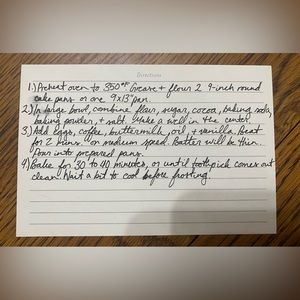 Directions
1.) Preheat oven to 350°F. Grease + flour 2 9-inch round
cake pans or one 9x13" pan.
2.) In large bowl, combine flour, sugar, cocoa, baking soda,
baking powder, + salt. Make a well in the center.
3.) Add eggs, coffee, buttermilk, oil, + vanilla. Beat
for 2 mins. on medium speed. Batter will be thin.
Pour into prepared pans.
4.) Bake for 30 to 40 minutes, or until toothpick comes out
clean. Wait a bit to cool before frosting.